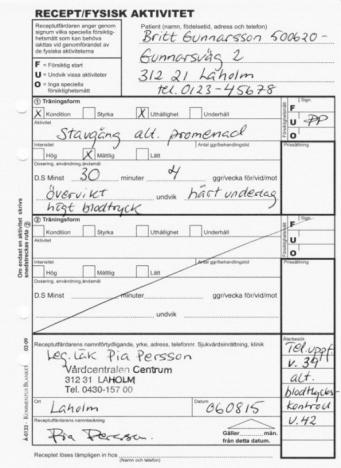 RECEPT/FYSISK AKTIVITET
Receptutfärdaren anger genom
signum vilka speciella försiktig-
hetsmått som kan behöva
iakttas vid genomförandet av
de fysiska aktiviteterna
F = Försiktig start
U = Undvik vissa aktiviteter
O = Inga speciella
försiktighetsmått
Patient (namn, födelsetid, adress och telefon)
Britt Gunnarsson 500620-
Gunnarsväg 2
312 21 Laholm
tel. 0123-45678
1 Träningsform
X Kondition Styrka X Uthållighet Underhåll
Försiktighetsmått
F Sign.
U PP
O
Aktivitet
Stavgång alt. promenad
Intensitet
Hög X Måttlig Lätt
Antal ggr/behandlingstid
Prissättning
Dosering, användning, ändamål
D.S Minst 30 minuter 4 ggr/vecka för/vid/mot
övervikt undvik hårt underlag
högt blodtryck
2 Träningsform
Kondition Styrka Uthållighet Underhåll
Försiktighetsmått
F Sign.
U
O
Aktivitet
Intensitet
Hög Måttlig Lätt
Antal ggr/behandlingstid
Prissättning
Dosering, användning, ändamål
D.S Minst minuter ggr/vecka för/vid/mot
undvik
Om endast en aktivitet skrivs
snedstreckas ruta 2
Receptutfärdarens namnförtydligande, yrke, adress, telefonnr. Sjukvårdsinrättning, klinik
Leg. läk Pia Persson
Vårdcentralen Centrum
312 31 LAHOLM
Tel. 0430-157 00
Återbesök
Tel. uppf
v. 34
alt.
blodtrycks-
kontroll
v. 42
Ort
Laholm
Datum
060815
Receptutfärdarens namnteckning
Pia Persson
Gäller mån.
från detta datum.
Receptet löses tämpligen in hos
(Namn och telefon)